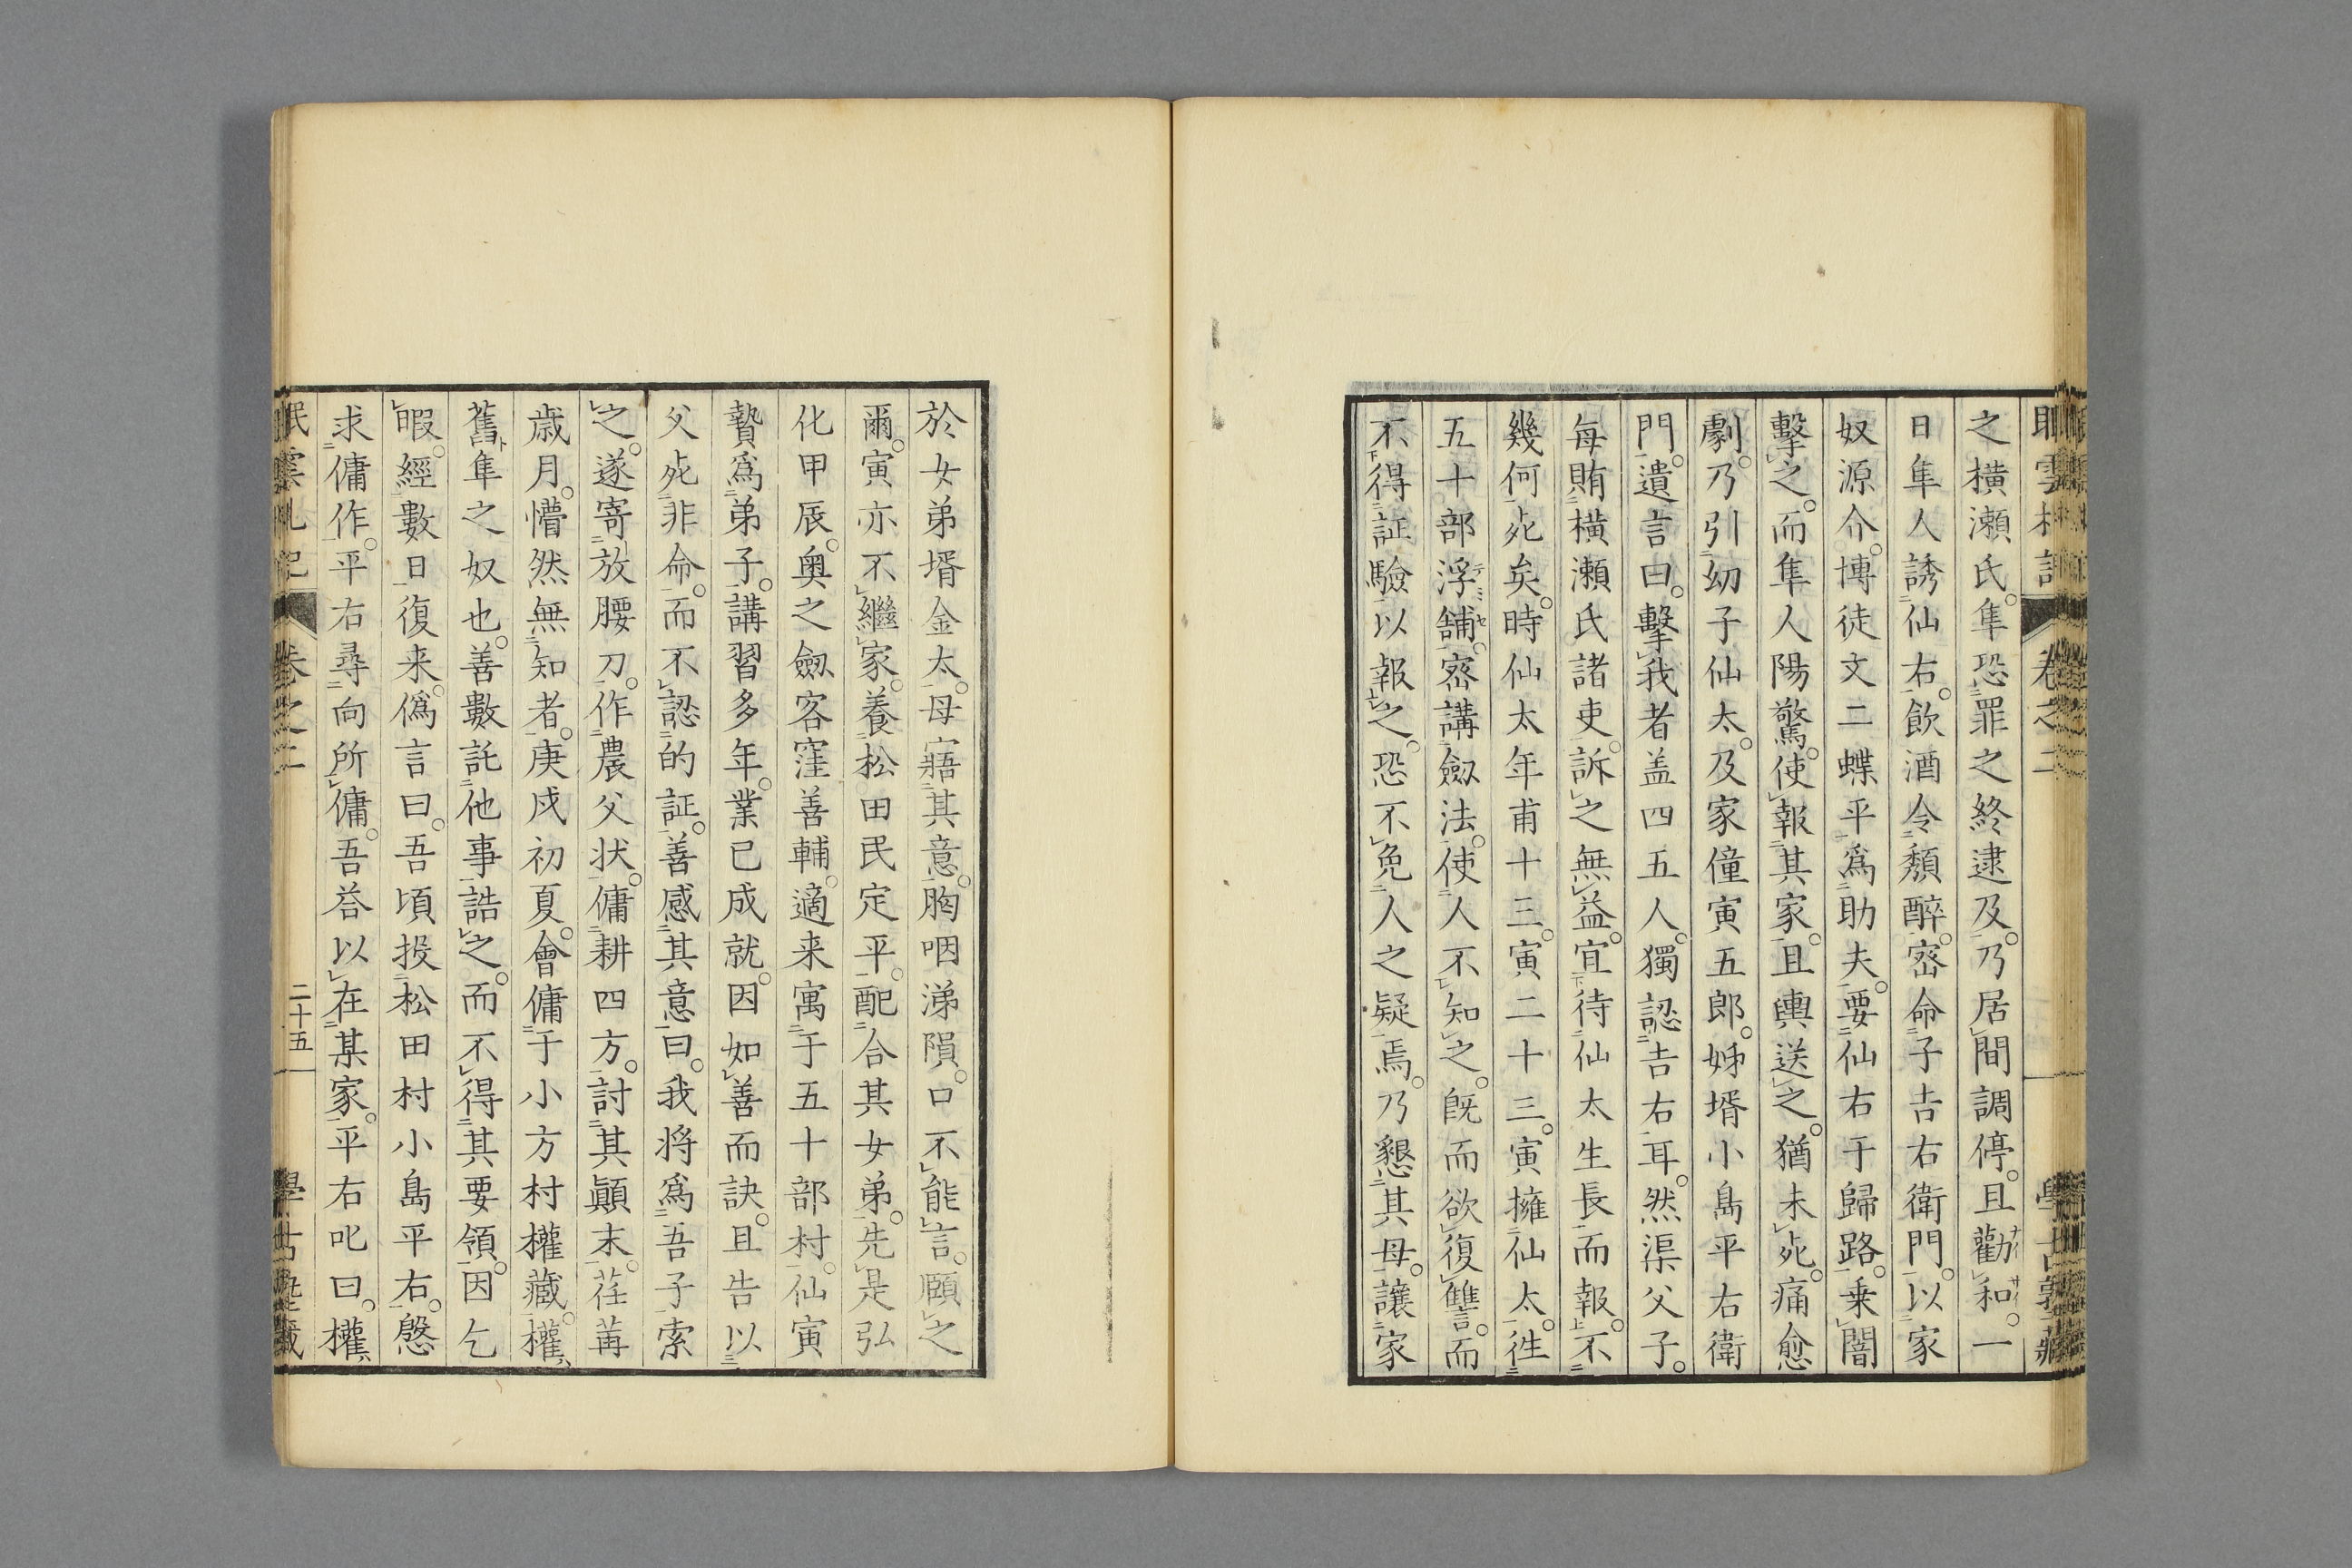 之横瀬氏。隼恐罪之終逮及。乃居間調停。且勸和。一
日隼人誘仙右。飲酒令頽醉。密命子吉右衛門。以家
奴源介。博徒文二蝶平爲助夫。要仙右于歸路。乗闇
擊之。而隼人陽驚。使報其家。且輿送之。猶未死。痛愈
劇。乃引幼子仙太。及家僮寅五郎。姊壻小島平右衛
門。遺言曰。擊我者盖四五人。獨認吉右耳。然渠父子。
每賄横瀬氏諸吏。訴之無益。宜待仙太生長而報。不
幾何死矣。時仙太年甫十三。寅二十三。寅擁仙太。徃
五十部浮舖。密講劒法。使人不知之。既而欲復讐。而
不得証驗以報之。恐不免人之疑焉。乃懇其母。讓家
於女弟壻金太。母寤其意。胸咽涕隕。口不能言。頤之
爾。寅亦不繼家。養松田民定平。配合其女弟。先是弘
化甲辰。奥之劒客窪善輔。適来寓于五十部村。仙寅
贄爲弟子。講習多年。業已成就。因如善而訣。且告以
父死非命。而不認的証。善感其意曰。我将爲吾子索
之。遂寄放腰刀。作農父状。傭耕四方。討其顚末。荏苒
歳月。懵然無知者。庚戍初夏。會傭于小方村權藏。權
舊隼之奴也。善數託他事誥之。而不得其要領。因乞
暇。經數日復来。僞言曰。吾頃投松田村小島平右。慇
求傭作。平右尋向所傭。吾荅以在某家。平右叱曰。權
卷之二
二十五